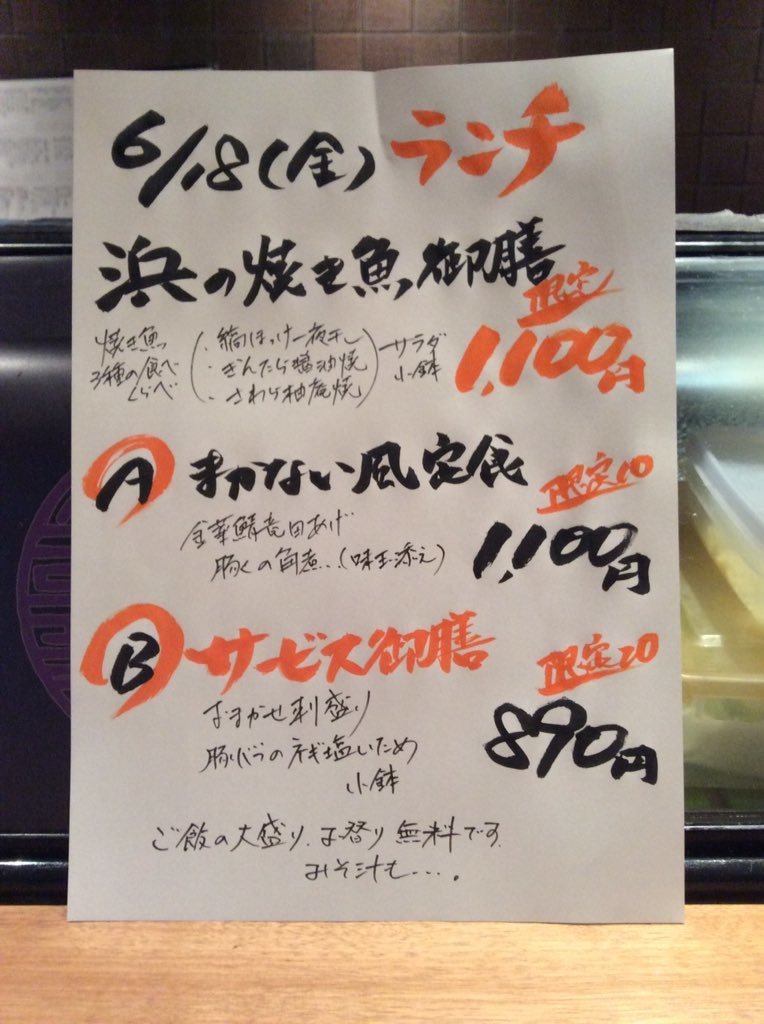 6/18(金) ランチ
浜の焼き魚御膳
限定
1,100円
焼き魚
3種の食べ
くらべ
(・縞ほっけ一夜干し
・ぎんだら醤油焼
・さわら柚庵焼)
サラダ
小鉢
A まかない風定食
限定10
金華鯖竜田あげ
豚くの角煮..(味玉添え)
1,100円
B サービス御膳
限定20
おまかせ刺盛り
豚バラのネギ塩いため
小鉢
890円
ご飯の大盛り、お替り無料です.
みそ汁も....